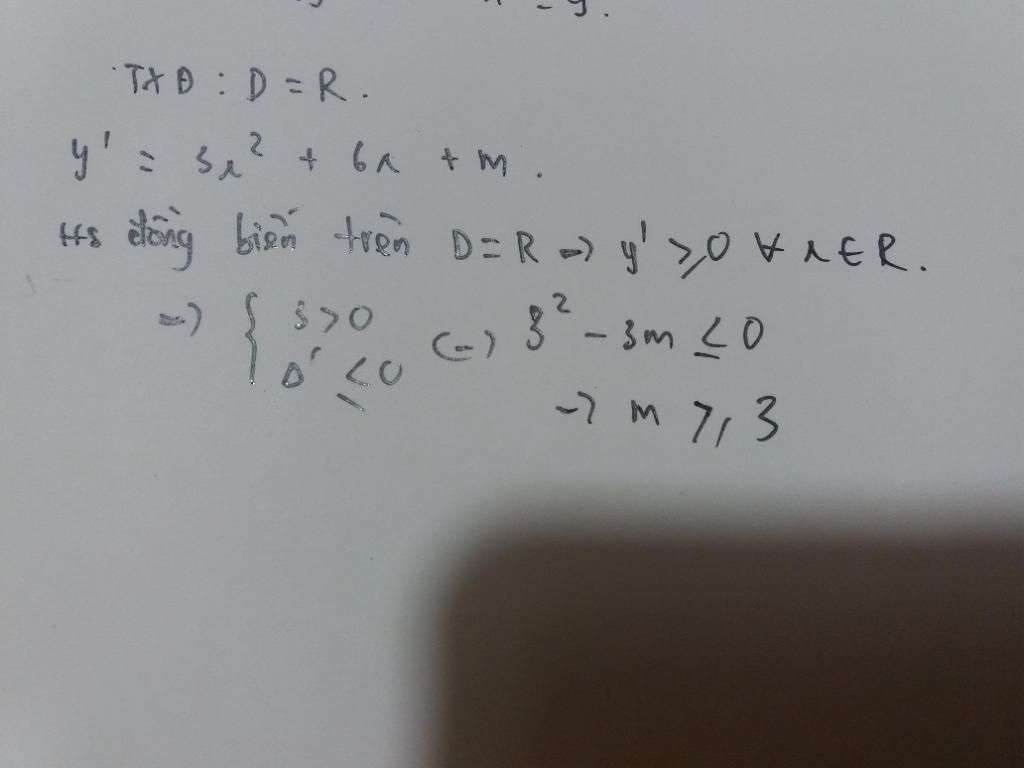 TXĐ : D = R.
y' = 3x² + 6x + m.
Hs đồng biến trên D = R => y' ≥ 0 ∀ x ∈ R.
=> { 3 > 0 Δ' ≤ 0 <=> 3² - 3m ≤ 0
-> m ≥ 3